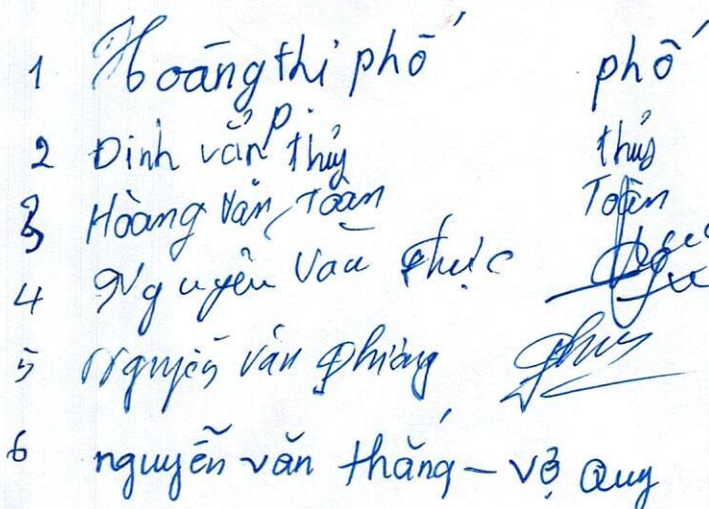 1 Hoàng thị phố phố
2 Đinh văn thủy thủy
3 Hoàng Văn Toàn Toàn
4 Nguyễn Văn Thức
5 Nguyễn Văn Phương
6 nguyễn văn thắng - vợ Quy